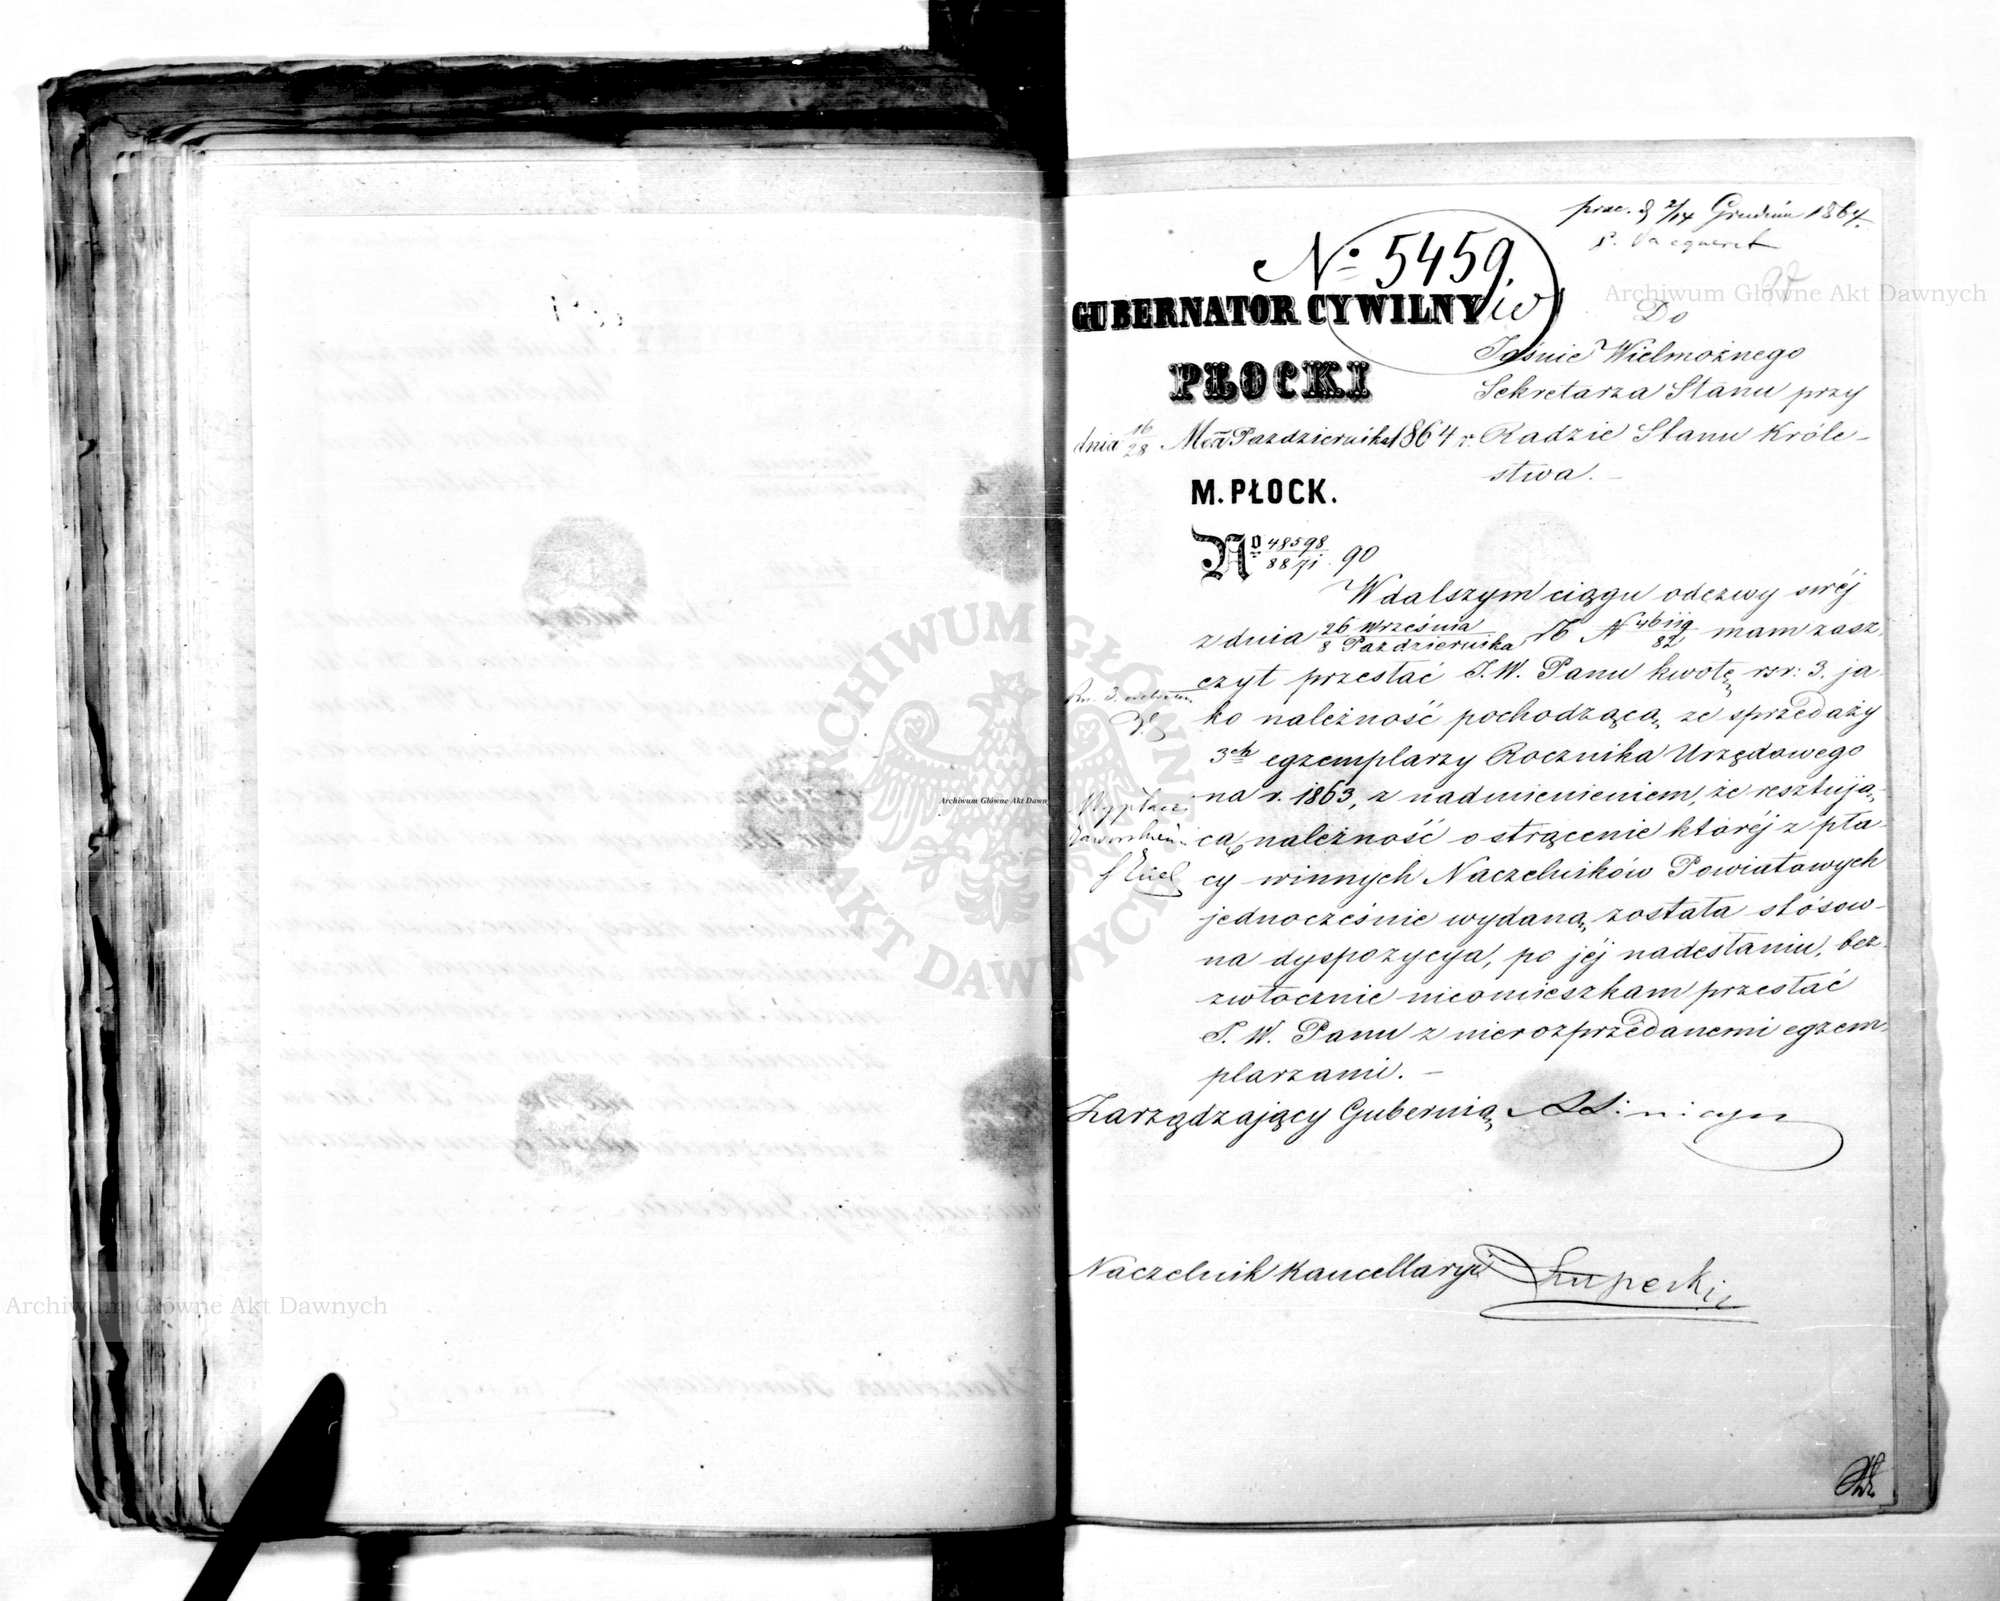 N° 5459.
GUBERNATOR CYWILNY
PŁOCKI
dnia 16/28 Mca Pazdziernika 1864 r.
M. PŁOCK.
N° 48598/8871 90
2/14 Grudnia 1864.
Do
Jaśnie Wielmożnego
Sekretarza Stanu przy
Radzie Stanu Króle-
stwa. -
W dalszym ciągu odezwy swéj
z dnia 26 Września/8 Pazdziernika rb N mam zasz-
czyt przesłać J.W. Panu kwotę rsr: 3. ja-
ko należność pochodzącą ze sprzedaży
3ch egzemplarzy Rocznika Urzędowego
na r. 1863, z nadmienieniem, że resztują-
cą należność o strącenie któréj z pła-
cy winnych Naczelników Powiatowych
jednocześnie wydaną została stósow-
na dyspozycya, po jéj nadesłaniu, bez-
zwłocznie nieomieszkam przesłać
J. W. Panu z nierozprzedanemi egzem-
plarzami. -
Zarządzający Gubernią
Naczelnik Kancellaryi
Archiwum Główne Akt Dawnych
Archiwum Główne Akt Dawnych
Archiwum Główne Akt Dawn
ARCHIWUM GŁÓWNE AKT DAWNYCH